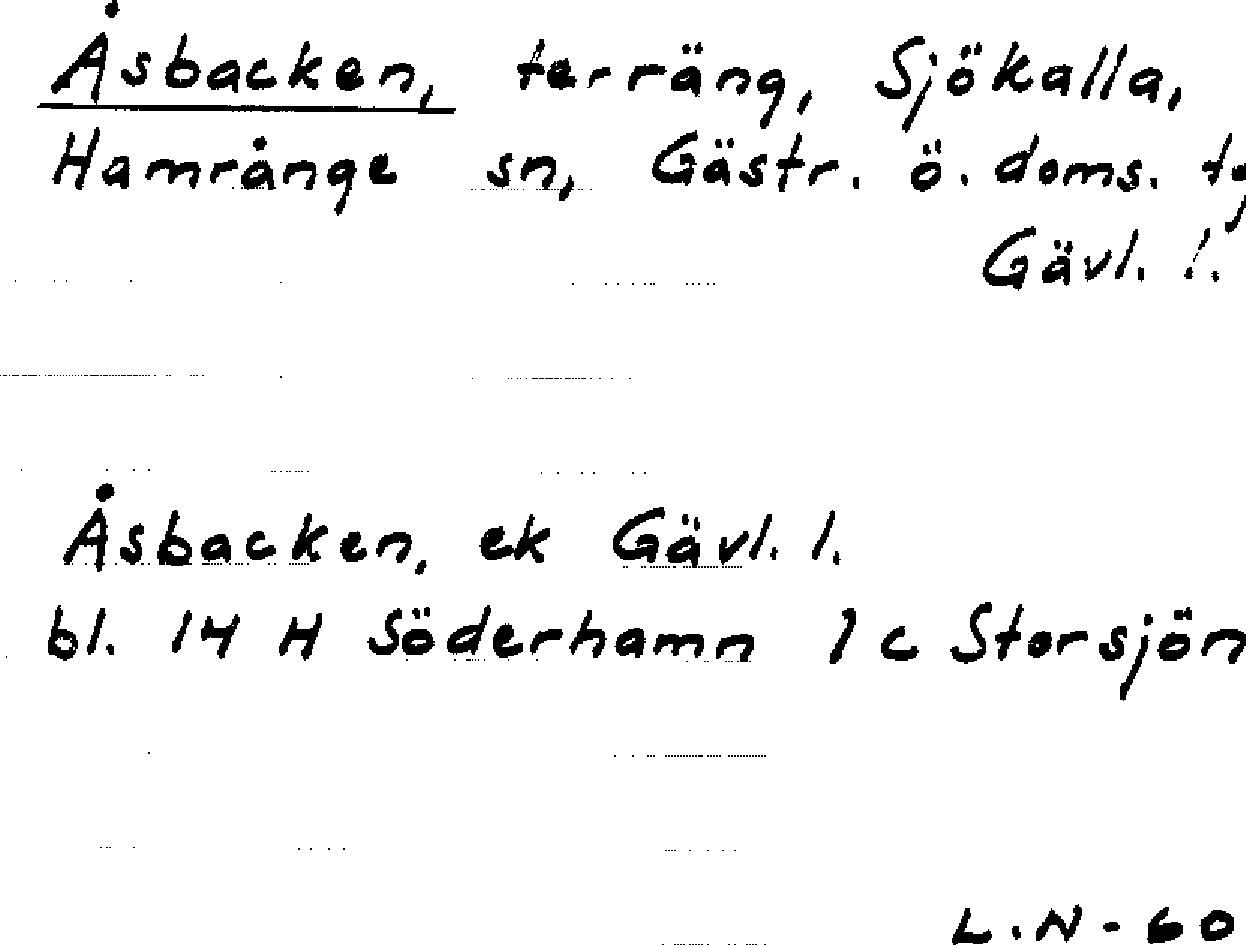 Åsbacken, terräng, Sjökalla,
Hamrånge sn, Gästr. ö. doms.
Gävl. l.
Åsbacken, ek Gävl. l.
bl. 14 H Söderhamn 1 c Storsjön
L.N-60